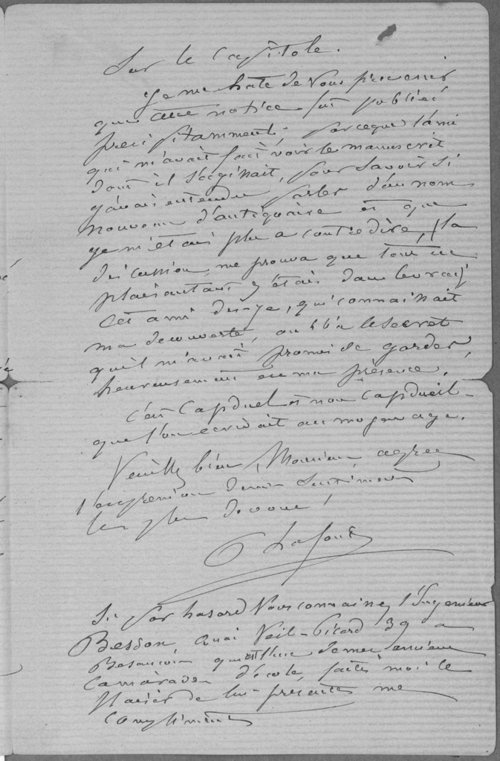 Sur le Capitole.
Je me hate de vous prevenir
que cette notice fut publiée
precipitamment. parceque l'ami
qui m'avait fait voir le manuscrit
dont il s'agissait, pour savoir si
j'avais entendu parler d'un nom
nouveau d'antiquaire et que
je m'étais plu a contredire, la
discussion, me prouva que tout en
plaisantant j'étais dans le vrai
Cet ami dis-je, qui connaissait
ma decouverte, oublia le secret
qu'il m'avait promis de garder
heureusement en ma présence.
c'est Capduel et non Capdueil
que l'on ecrivait au moyen age.
Veuillez bien, Monsieur agréer
l'expression de mes sentiments
les plus devoués
Si par hasard Vous connaissez l'Ingenieur
Besson, quai Veil-Picard 39 a
Besancon de mes anciens
camarades d'école, faites moi le
plaisir de lui presenter mes
compliments